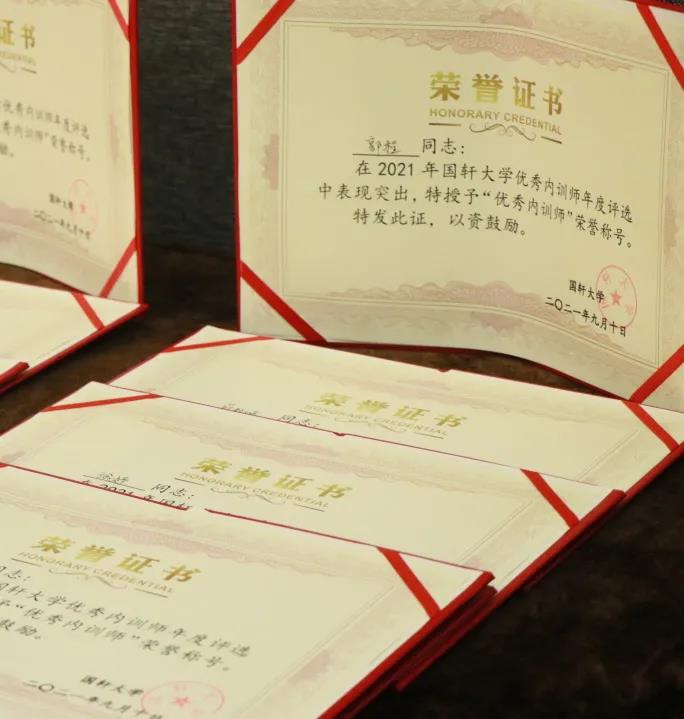 证书
优秀内训师年度评选
优秀内训师”荣誉称号。
励。
二〇二一年九月十日
荣誉证书
HONORARY CREDENTIAL
郭程 同志：
在 2021 年国轩大学优秀内训师年度评选
中表现突出，特授予“优秀内训师”荣誉称号。
特发此证，以资鼓励。
国轩大学
二〇二一年九月十日
荣誉证书
HONORARY CREDENTIAL
同志：
荣誉证书
HONORARY CREDENTIAL
同志：
在 2021 年国轩
荣誉证书
HONORARY CREDENTIAL
同志：
国轩大学优秀内训师年度评选
予“优秀内训师”荣誉称号。
鼓励。
国轩大学
二〇二一年九月十日